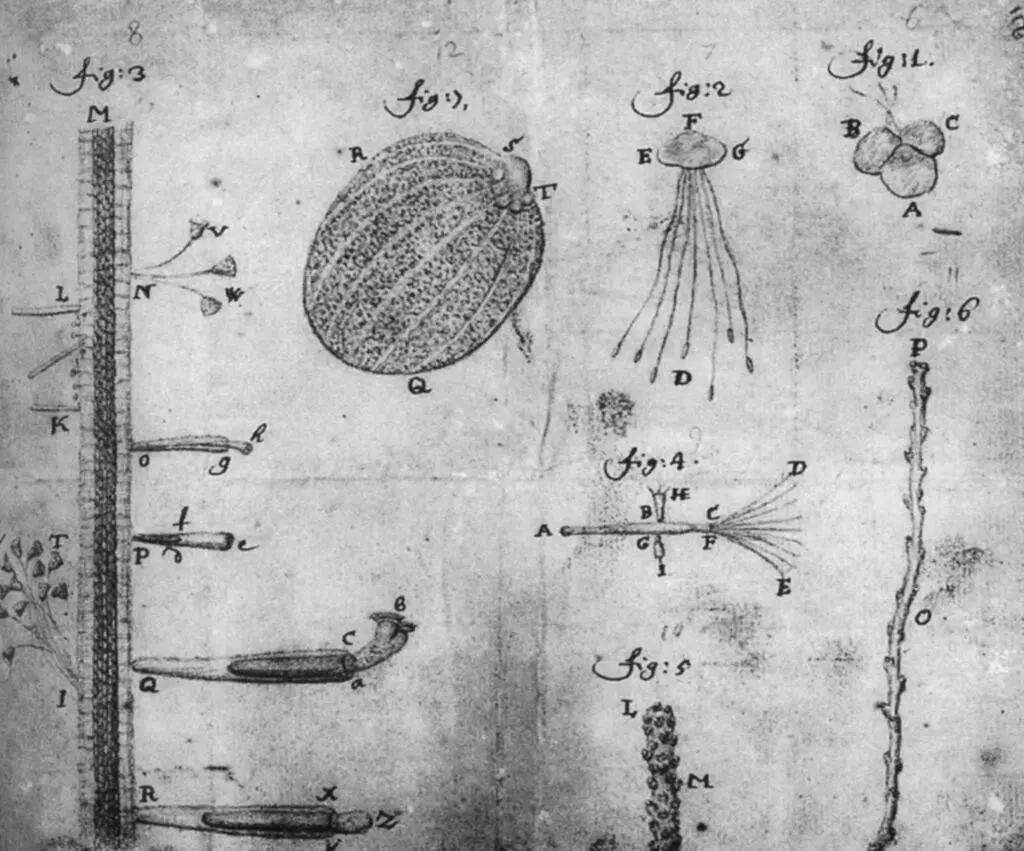 8
12
7
6
fig:3
fig:7,
fig:2
fig:1.
M
F
B C
R S
E G
T
A
V
N W
L
11
fig:6
D
P
Q
K
9
h
o g
fig:4.
D
H
f
B C
A
T
G F
P e
I
E
B
O
C
10
Q a
fig:5
I
L
M
R X
Z